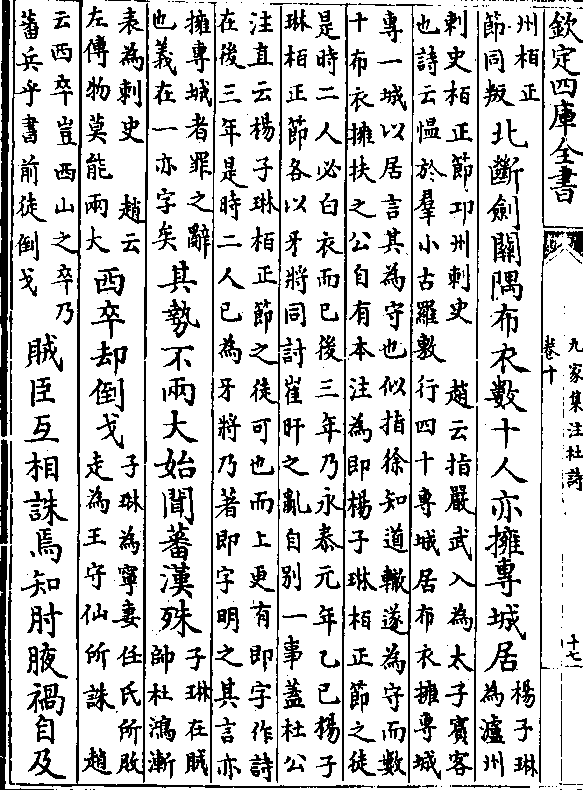 欽定四庫全書
九家集注杜詩
卷十
十七
州栢正
節同叛北斷劍關隅布衣數十人亦擁專城居楊子琳
為瀘州
刺史栢正節邛州刺史　趙云指嚴武入為太子賓客
也詩云愠於羣小古羅敷行四十專城居布衣擁專城
專一城以居言其為守也似指徐知道轍遂為守而數
十布衣擁扶之公自有本注為即楊子琳栢正節之徒
是時二人必白衣而已後三年乃永泰元年乙巳楊子
琳栢正節各以牙將同討崔旰之亂自别一事蓋杜公
注直云楊子琳栢正節之徒可也而上更有即字作詩
在後三年是時二人已為牙將乃著即字明之其言亦
擁專城者罪之辭
也義在一亦字矣其勢不兩大始聞蕃漢殊子琳在賊
帥杜鴻漸
表為刺史　趙云
左傳物莫能兩大西卒却倒戈子琳為寧妻任氏所敗
走為王守仙所誅　趙
云西卒豈西山之卒乃
蕃兵乎書前徒倒戈賊臣互相誅焉知肘腋禍自及